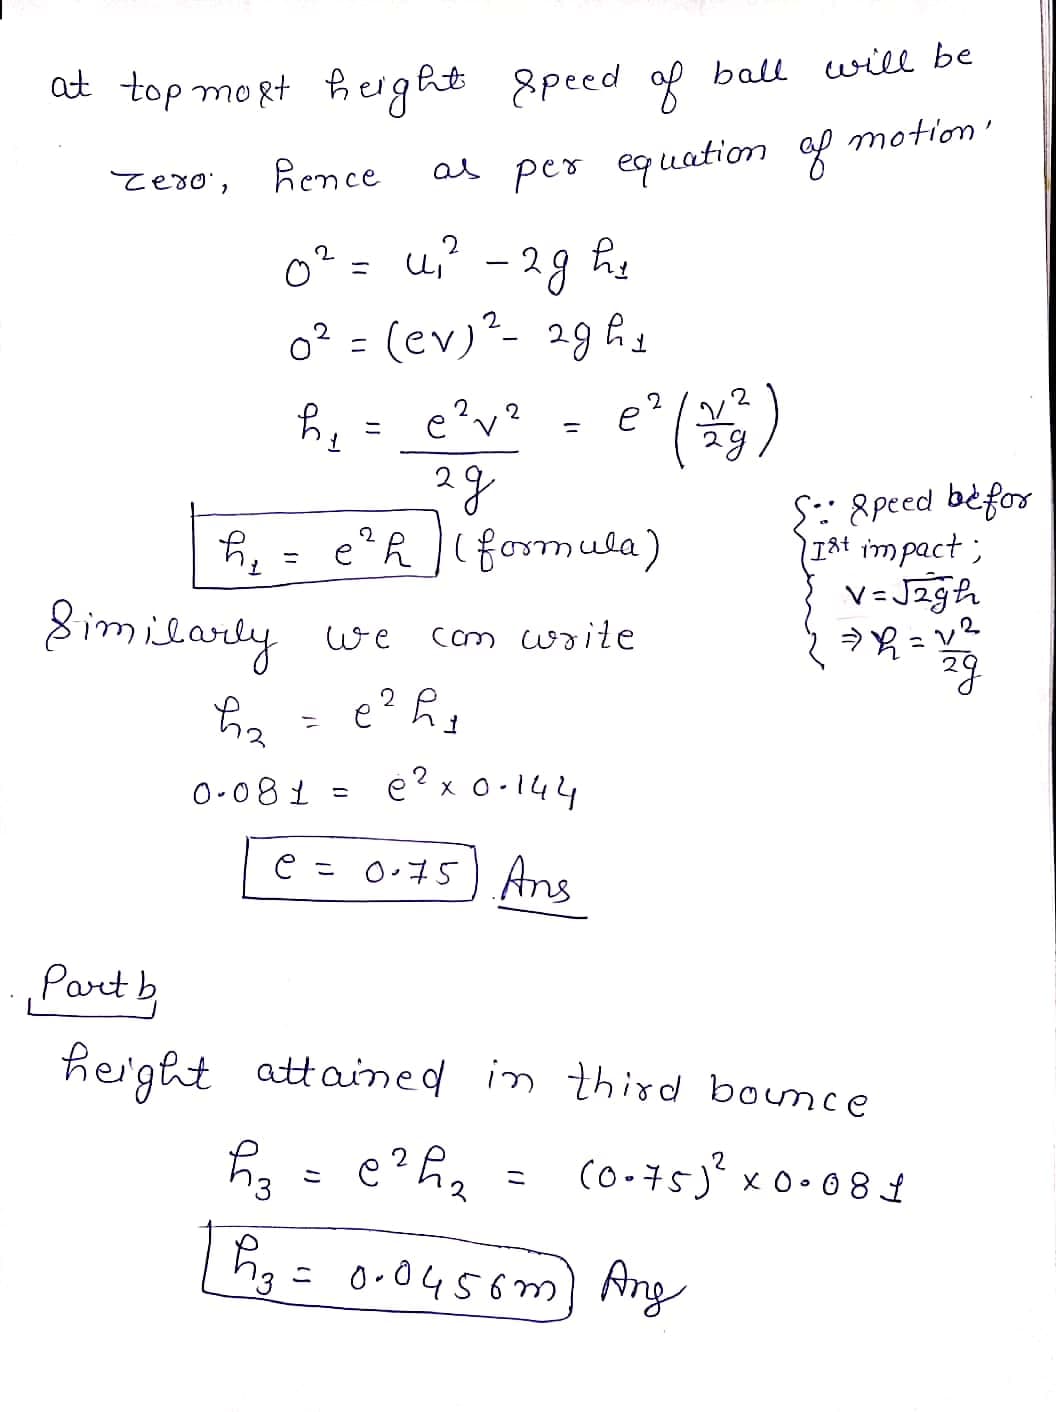 at topmost height speed of ball will be
zero, hence as per equation of motion,
0² = u₁² - 2g h₁
0² = (ev)² - 2g h₁
h₁ = e²v²/2g = e² (v²/2g)
h₁ = e²h (formula)
{∵ speed befor
Ist impact ;
v = √2gh
⇒ h = v²/2g
Similarly we can write
h₂ = e² h₁
0.081 = e² x 0.144
e = 0.75 Ans
Part b
height attained in third bounce
h₃ = e²h₂ = (0.75)² x 0.081
h₃ = 0.0456m Ans